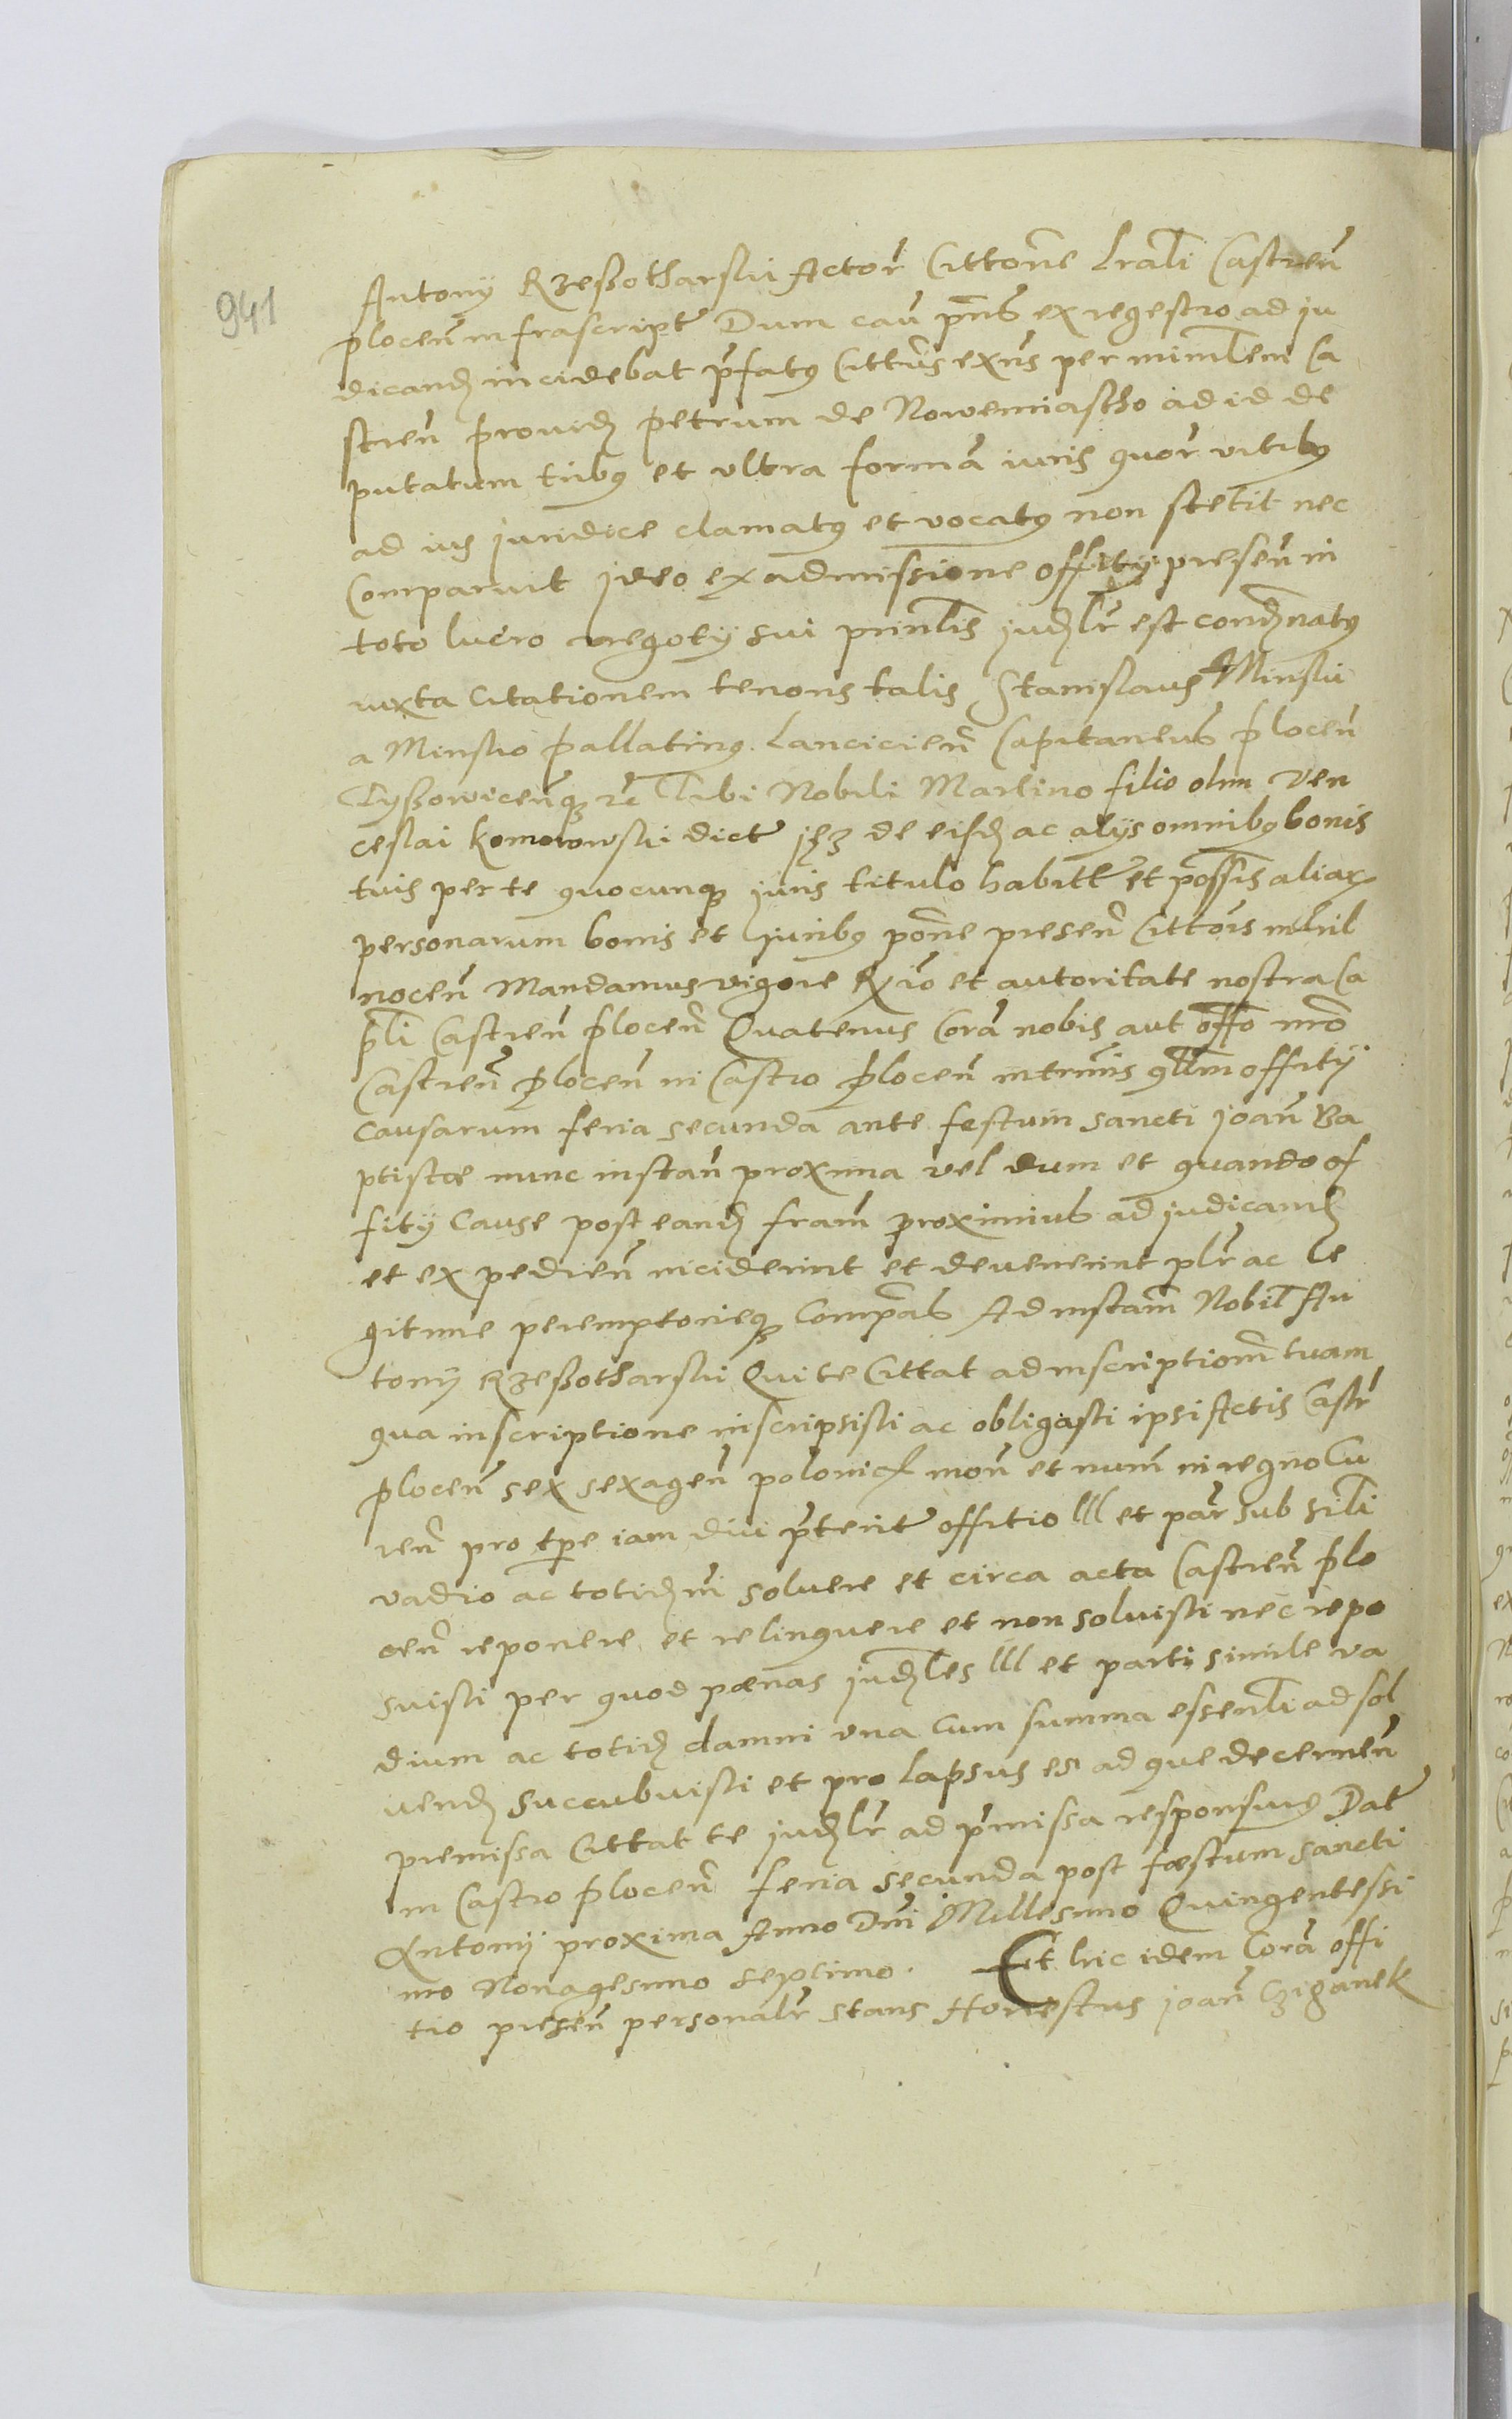 941
Antony Rzeßotharski Actor̃ Cittone Lrãli Castren̄
plocen̄ infrascript̃ Dum cau pñs ex regestro ad ju
dicand incidebat p̃fatus Cittus exñs per mim̃lem Ca
stren̄ provid petrum de Nowemiastho ad id de
putatum tribus et ultra formã iuris quor̃ vitibus
ad ius juridice clamatus et vocatus non stetit nec
Comparuit jdeo ex admissione offity presen̄ in
toto lucro negoty sui prinĩlis judlr̃ est condnatus
iuxta Citationem tenoris talis Stanislaus Minski
a Minsko pallatinus Lancicien̄ Capitaneus plocen̄
Lyßowicen̄q3 rc Tibi Nobili Martino filio olim Ven
ceslai komorowski dict̃ de eisd ac alys omnibus bonis
tuis per te quocunq3 juris titulo habitt̃ et possis aliar
personarum bonis et juribus pone presen̄ Cittõis nihil
nocen̄ Mandamus vigore R̃ et autoritate nostra Ca
pli Castren̄ plocen̄ Quatenus Corã nobis aut offo nrõ
Castren̄ plocen̄ in Castro plocen̄ in trm̃is qllm offity
causarum feria secunda ante festum sancti joan̄ Ba
ptistæ nunc instan̄ proxima vel dum et quando of
fity Cause post eand fram̃ proximius ad judicand
et expedien̄ inciderint et devenerint plr̃ ac le
gitime peremptorieq3 Compã̃s Ad instam̃ Nobil An
tony Rzeßotharski Qui te Cittat ad inscriptiom̃ tuam
qua inscriptione inscripsisti ac obligasti ipsi Actis Castr̃
plocen̄ sex sexagen̄ polonicł mon̄ et num̃ in regno Cu
ren̄ pro tpe iam diu p̃terit̃ offitio lll et par̃ sub sili
vadio ac totidm̃ solvere et circa acta Castren̄ plo
cen̄ reponere et relinquere et non solvisti nec repo
suisti per quod pænas judles lll et parti simile va
dium ac totid damni una cum summa essenli ad sol
vend succubuisti et pro lapsus es ad que decernen̄
premissa Cittat te judlr̃ ad p̃missa responsurus Dat̃
in Castro plocen̄ feria secunda post fæstum sancti
Antony proxima Anno Dni Millesimo Quingentessi
mo Nonagesimo septimo. Et hic idem Corã offi
tio presen̄ personalr̃ stans Honestus joan̄ Cziganek